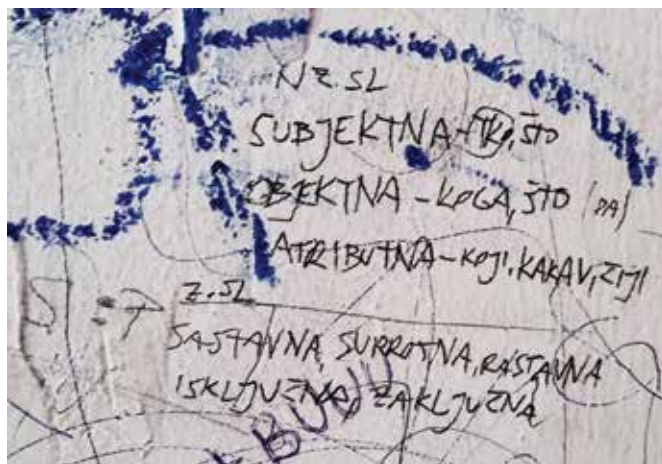 NZ.SL
SUBJEKTNA-TKO, ŠTO
OBJEKTNA - KOGA, ŠTO (DA)
ATRIBUTNA-KOJI, KAKAV, ČIJI
Z.SL
SASTAVNA, SUPROTNA, RASTAVNA
ISKLJUČNA, ZAKLJUČNA